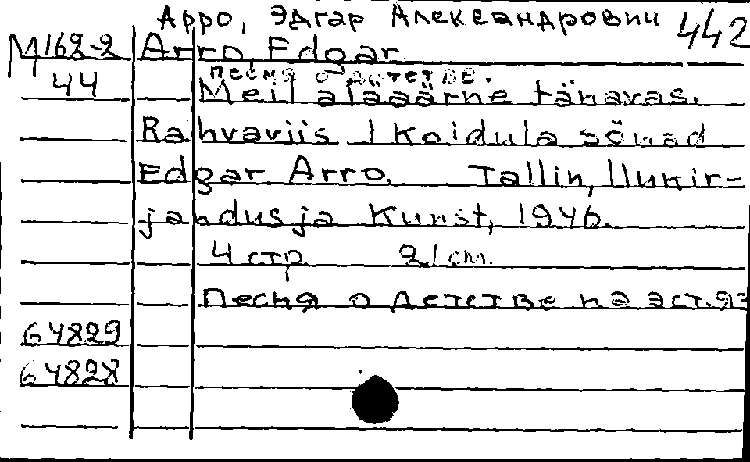 Арро, Эдгар Александрович 442
М162-2 Arro, Edgar
песня о детстве.
44 Meil aiaäärne tänavas.
Rahvaviis L Koidula sõnad
Edgar Arro. Tallin, Ilukir-
jandus ja Kunst, 1946.
4 стр. 21 cm.
Песня о детстве на эст. яз
64829
64828